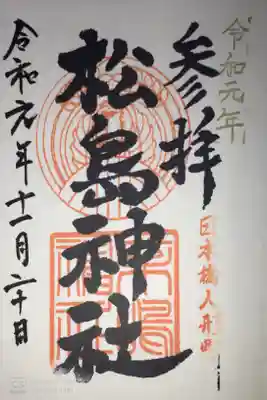 令和元年
参拝
日本橋人形町
松島神社
令和元年十一月二十日